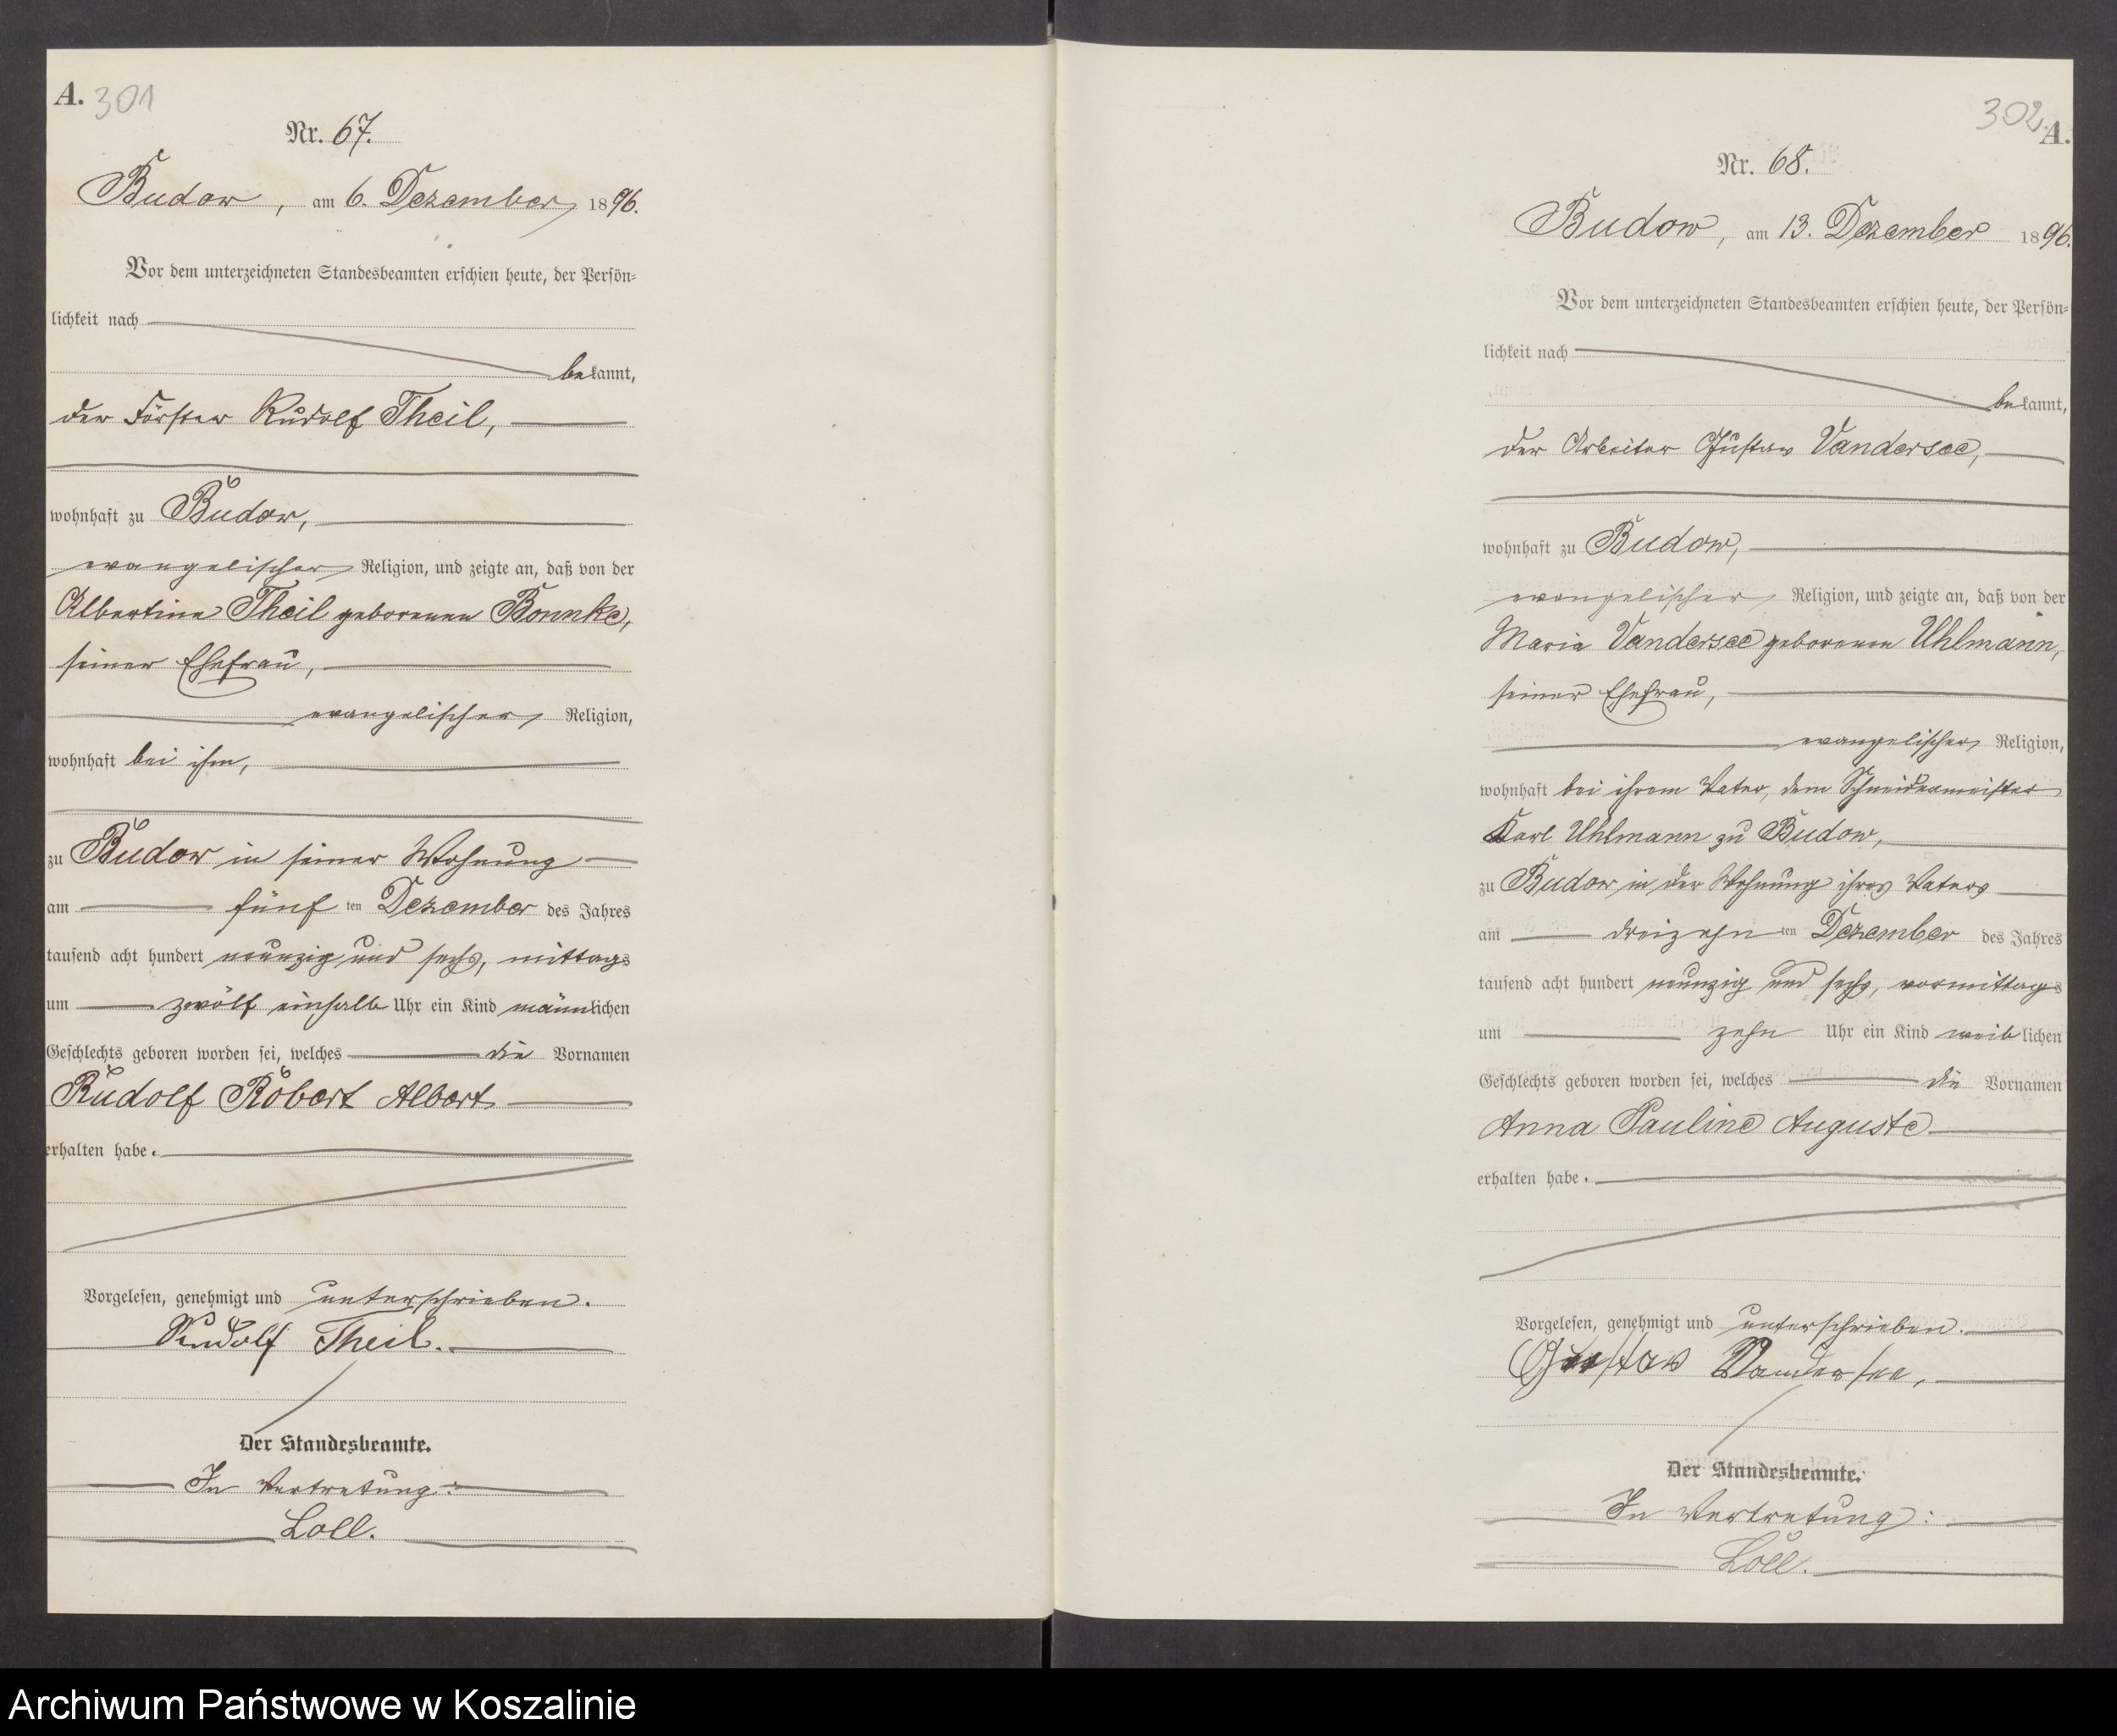 A. 301
Nr. 67.
Budow, am 6. Dezember 1896.
Vor dem unterzeichneten Standesbeamten erschien heute, der Persön-
lichkeit nach
bekannt,
der Förster Rudolf Theil,
wohnhaft zu Budow,
evangelischer Religion, und zeigte an, daß von der
Albertine Theil geborenen Bonnke,
seiner Ehefrau,
evangelischer Religion,
wohnhaft bei ihm,
zu Budow in seiner Wohnung
am fünften Dezember des Jahres
tausend acht hundert neunzig und sechs, mittags
um zwölf einhalb Uhr ein Kind männlichen
Geschlechts geboren worden sei, welches die Vornamen
Rudolf Robert Albert
erhalten habe.
Vorgelesen, genehmigt und unterschrieben.
Rudolf Theil.
Der Standesbeamte.
In Vertretung:
Loll.
302 A.
Nr. 68.
Budow, am 13. Dezember 1896.
Vor dem unterzeichneten Standesbeamten erschien heute, der Persön-
lichkeit nach
bekannt,
der Arbeiter Gustav Vandersee,
wohnhaft zu Budow,
evangelischer Religion, und zeigte an, daß von der
Maria Vandersee geborenen Uhlmann,
seiner Ehefrau,
evangelischer Religion,
wohnhaft bei ihrem Vater, dem Schneidermeister
Karl Uhlmann zu Budow,
zu Budow in der Wohnung ihres Vaters
am dreizehnten Dezember des Jahres
tausend acht hundert neunzig und sechs, vormittags
um zehn Uhr ein Kind weiblichen
Geschlechts geboren worden sei, welches die Vornamen
Anna Pauline Auguste
erhalten habe.
Vorgelesen, genehmigt und unterschrieben.
Gustav Vandersee,
Der Standesbeamte.
In Vertretung:
Loll.
Archiwum Państwowe w Koszalinie